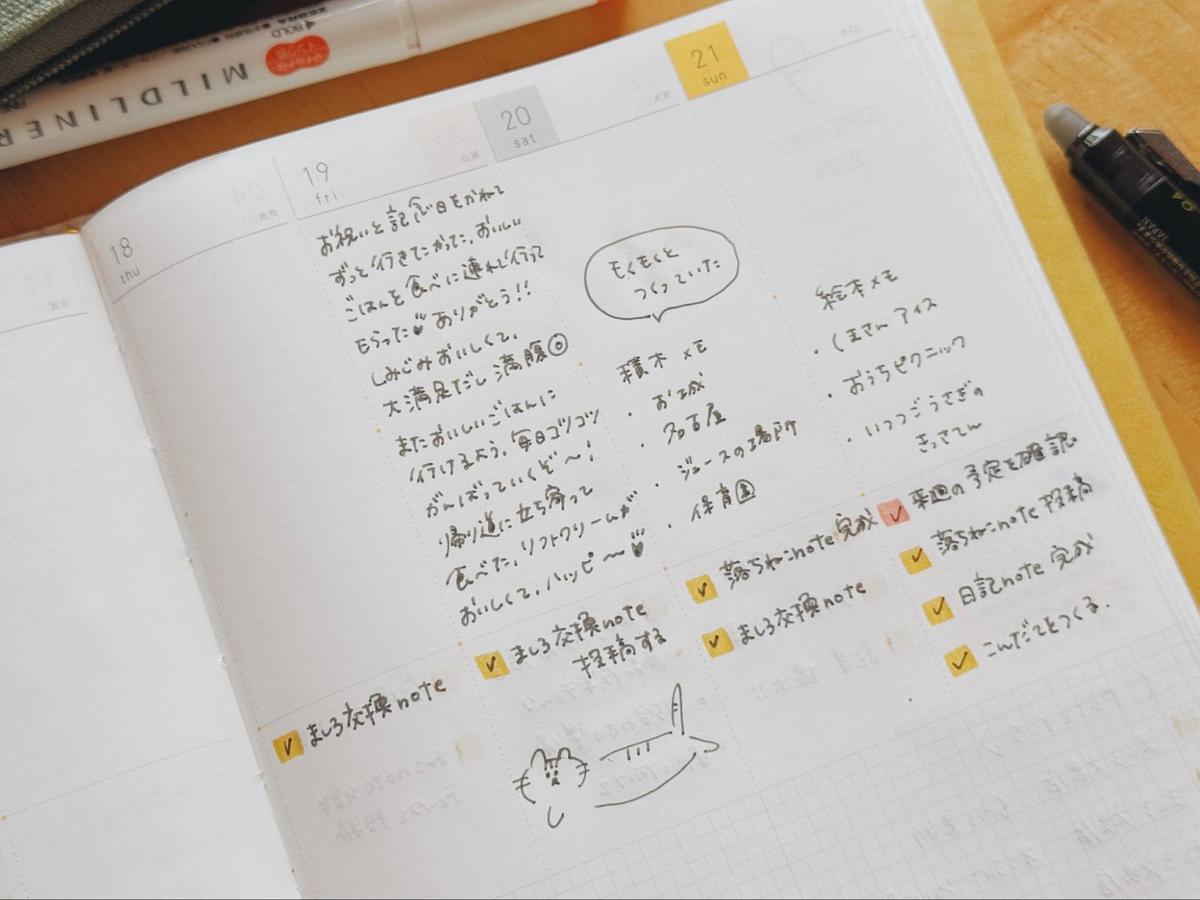 MILDLINER
BOLD
ZEBRA
18
thu
ましろ交換note
19
fri
お祝いと記念日をかねて
ずっと行きたかった、おいしい
ごはんを食べに連れて行って
もらった ありがとう!!
しみじみおいしくて、
大満足だし満腹
またおいしいごはんに
行けるよう、毎日コツコツ
がんばっていくぞ〜!
帰り道に立ち寄って
食べた、ソフトクリームが
おいしくて、ハッピ〜
ましろ交換note
投稿する
仏滅
20
sat
もくもくと
つくっていた
積木メモ
・お城
・名古屋
・ジュースの場所
・保育園
落ちねこnote完成
ましろ交換note
大安
21
sun
絵本メモ
・くまさんアイス
・おうちピクニック
・いつつごうさぎの
きっさてん
来週の予定を確認
落ちねこnote投稿
日記note完成
こんだてをつくる.
04